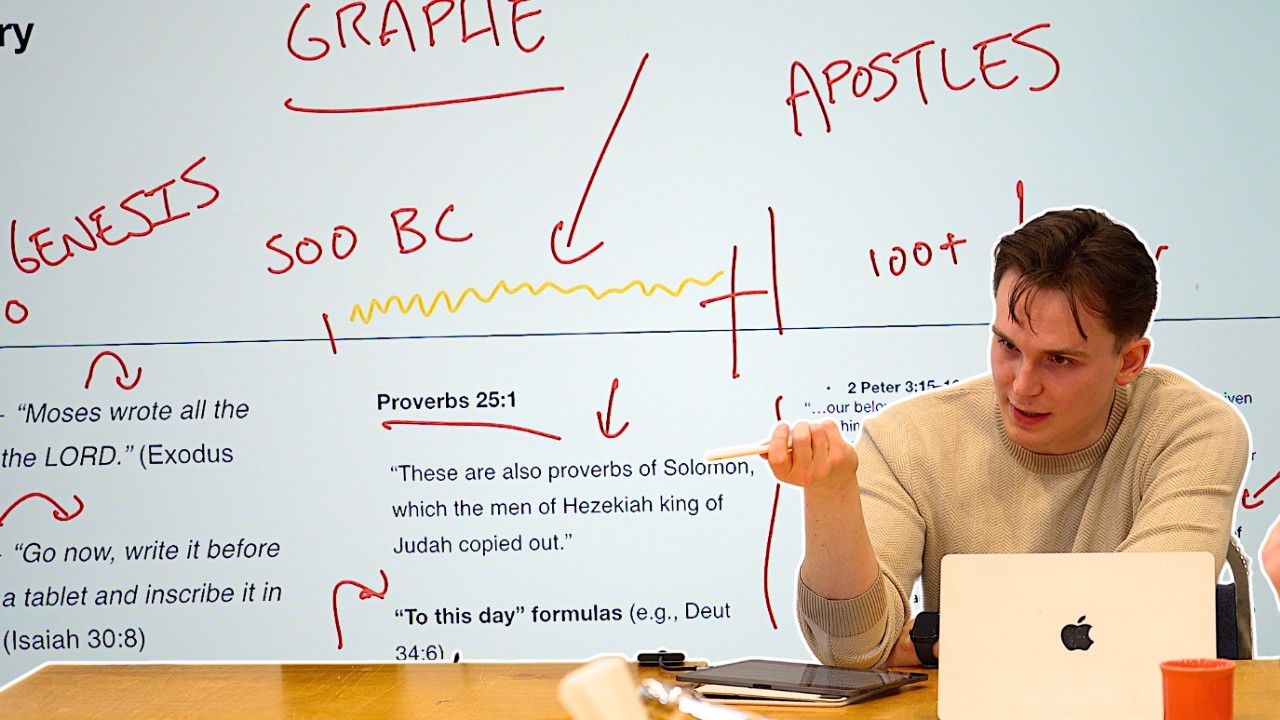 ry
GRAPHE
APOSTLES
GENESIS
500 BC
100+
0
"Moses wrote all the
the LORD." (Exodus
"Go now, write it before
a tablet and inscribe it in
(Isaiah 30:8)
Proverbs 25:1
"These are also proverbs of Solomon,
which the men of Hezekiah king of
Judah copied out."
"To this day" formulas (e.g., Deut
34:6)
• 2 Peter 3:15-
"…our